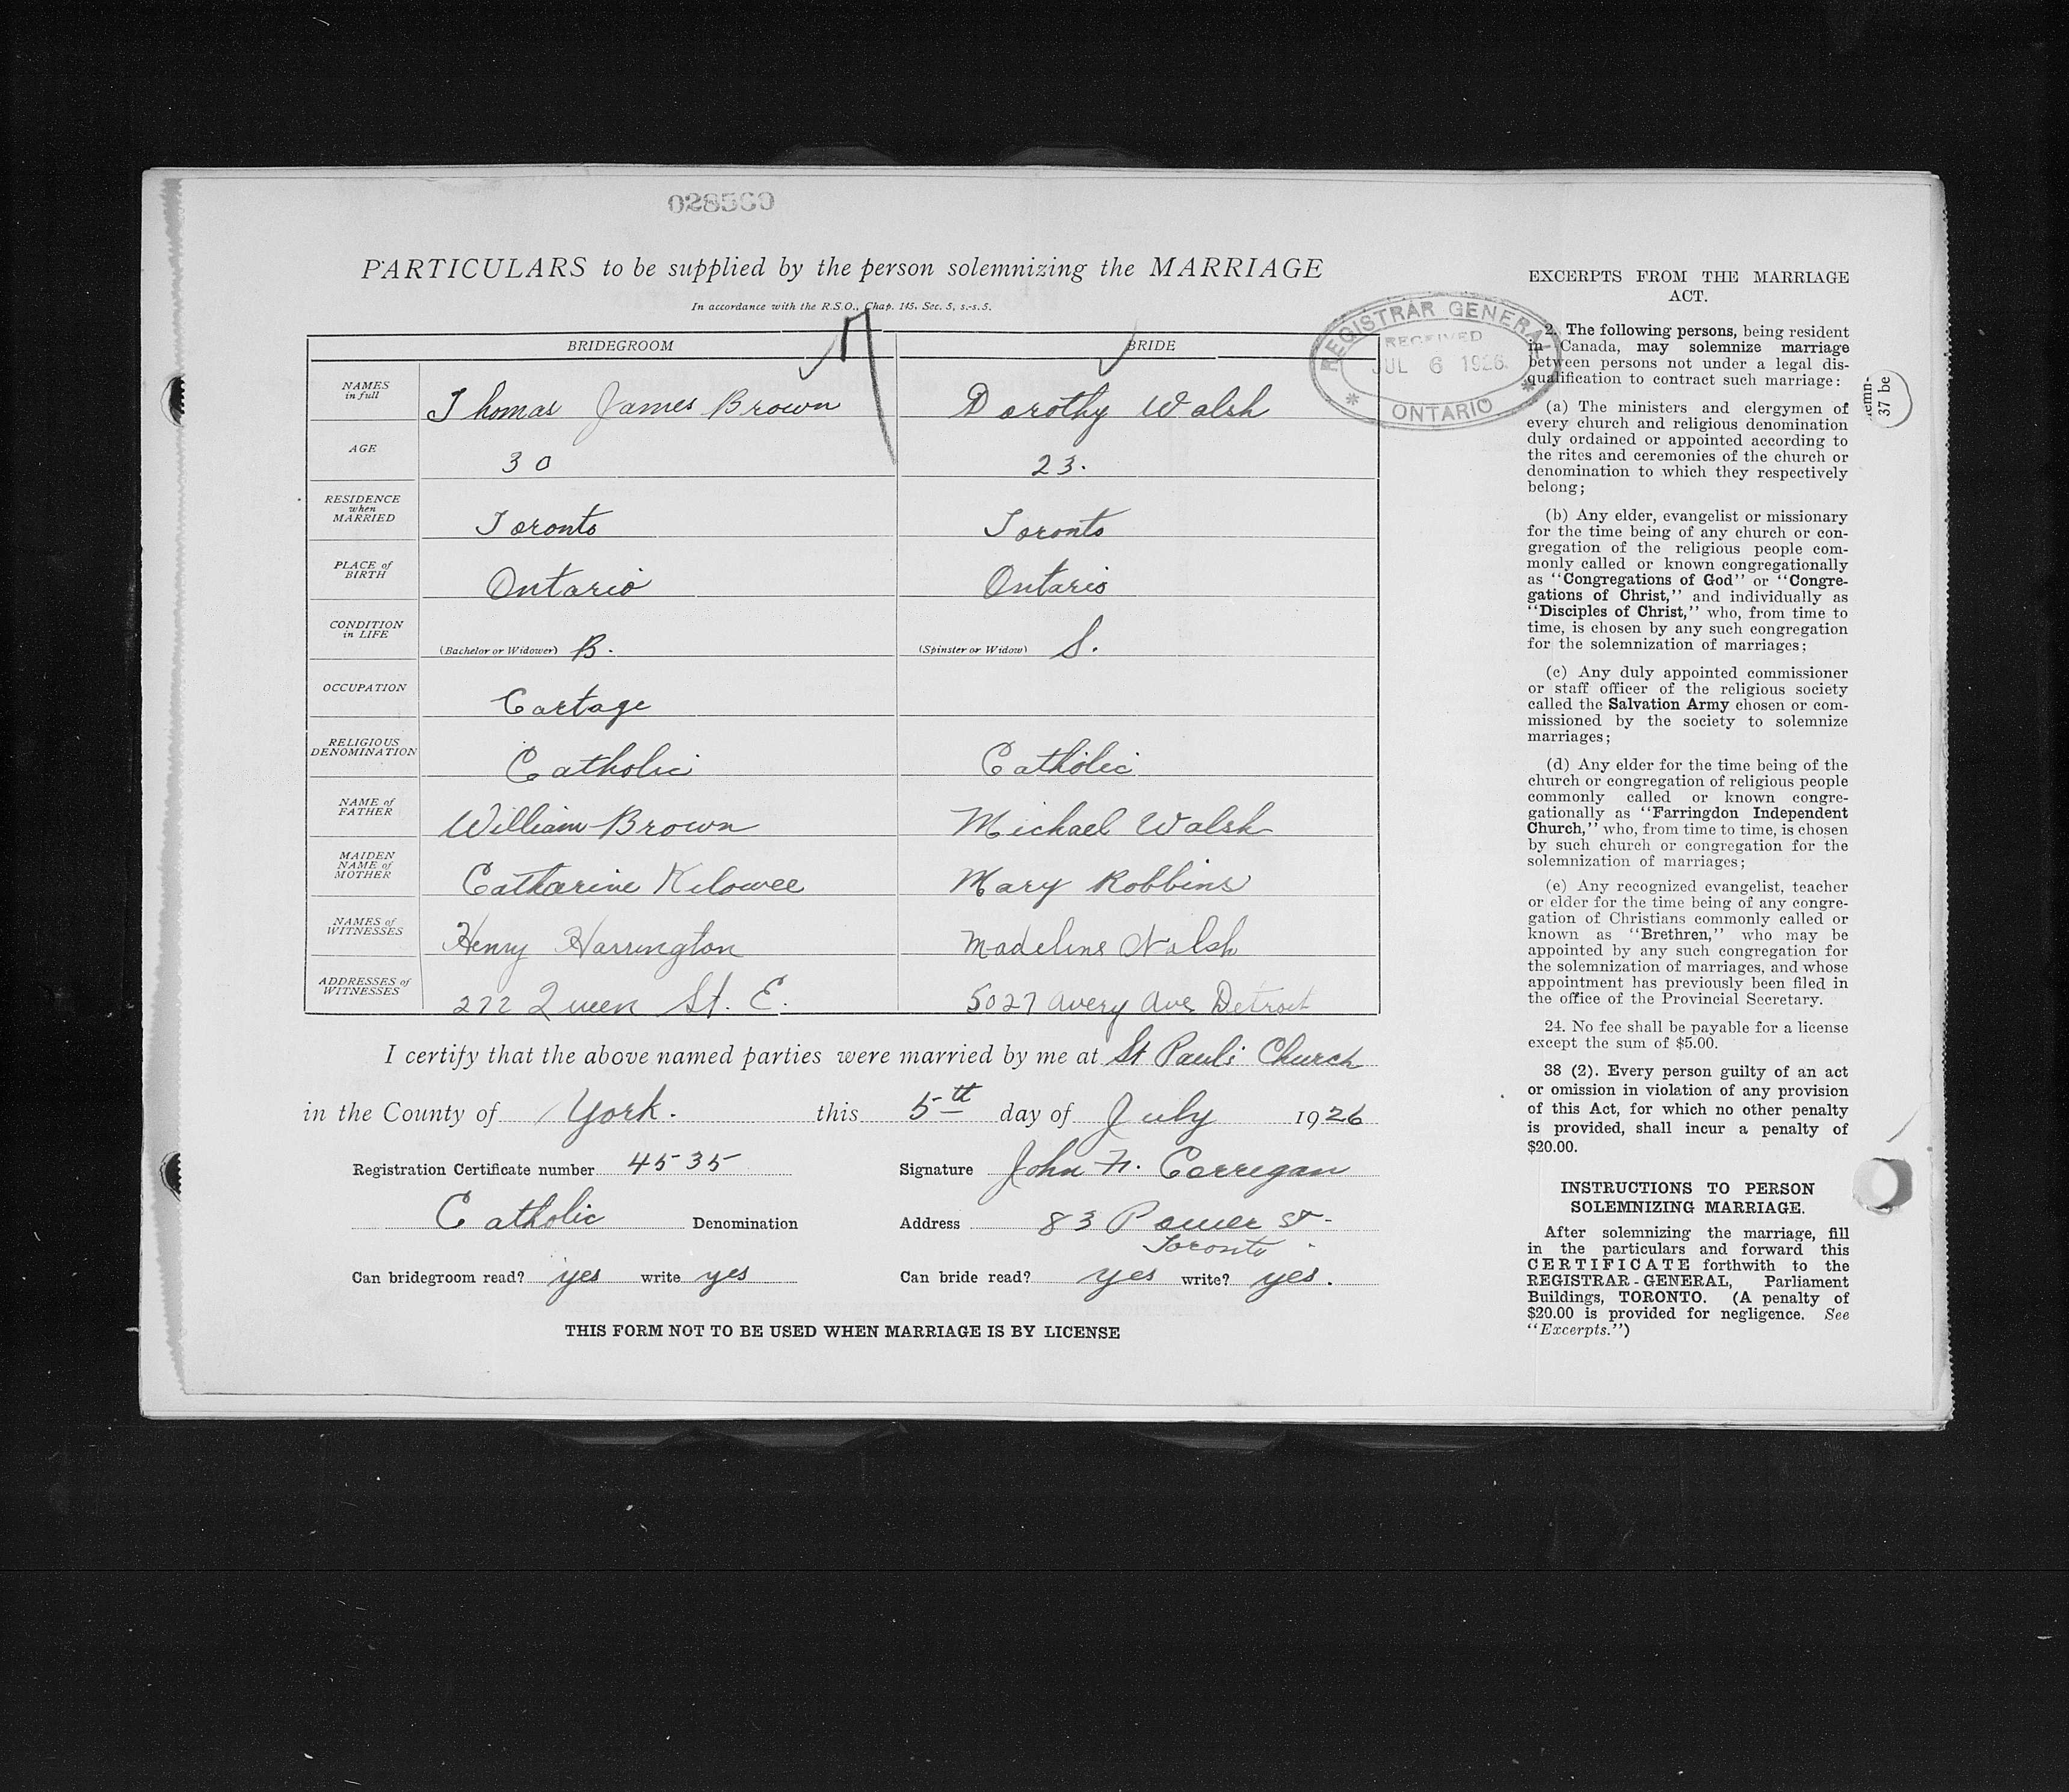 028560
PARTICULARS to be supplied by the person solemnizing the MARRIAGE
In accordance with the R.S.O., Chap. 145, Sec. 5, s.-s. 5.
BRIDEGROOM BRIDE
NAMES in full Thomas James Brown Dorothy Walsh
AGE 30 23.
RESIDENCE when MARRIED Toronto Toronto
PLACE of BIRTH Ontario Ontario
CONDITION in LIFE (Bachelor or Widower) B. (Spinster or Widow) S.
OCCUPATION Cartage
RELIGIOUS DENOMINATION Catholic Catholic
NAME of FATHER William Brown Michael Walsh
MAIDEN NAME of MOTHER Catharine Kilowee Mary Robbins
NAMES of WITNESSES Henry Harrington Madeline Walsh
ADDRESSES of WITNESSES 272 Queen St. E. 5027 Avery Ave Detroit
I certify that the above named parties were married by me at St Paul's Church
in the County of York. this 5th day of July 1926
Registration Certificate number 4535 Signature John F. Corrigan
Catholic Denomination Address 83 Power St.
Toronto
Can bridegroom read? yes write yes Can bride read? yes write? yes.
THIS FORM NOT TO BE USED WHEN MARRIAGE IS BY LICENSE
REGISTRAR GENERAL
RECEIVED
JUL 6 1926
ONTARIO
EXCERPTS FROM THE MARRIAGE
ACT.
2. The following persons, being resident
in Canada, may solemnize marriage
between persons not under a legal dis-
qualification to contract such marriage:
(a) The ministers and clergymen of
every church and religious denomination
duly ordained or appointed according to
the rites and ceremonies of the church or
denomination to which they respectively
belong;
(b) Any elder, evangelist or missionary
for the time being of any church or con-
gregation of the religious people com-
monly called or known congregationally
as "Congregations of God" or "Congre-
gations of Christ," and individually as
"Disciples of Christ," who, from time to
time, is chosen by any such congregation
for the solemnization of marriages;
(c) Any duly appointed commissioner
or staff officer of the religious society
called the Salvation Army chosen or com-
missioned by the society to solemnize
marriages;
(d) Any elder for the time being of the
church or congregation of religious people
commonly called or known congre-
gationally as "Farringdon Independent
Church," who, from time to time, is chosen
by such church or congregation for the
solemnization of marriages;
(e) Any recognized evangelist, teacher
or elder for the time being of any congre-
gation of Christians commonly called or
known as "Brethren," who may be
appointed by any such congregation for
the solemnization of marriages, and whose
appointment has previously been filed in
the office of the Provincial Secretary.
24. No fee shall be payable for a license
except the sum of $5.00.
38 (2). Every person guilty of an act
or omission in violation of any provision
of this Act, for which no other penalty
is provided, shall incur a penalty of
$20.00.
INSTRUCTIONS TO PERSON
SOLEMNIZING MARRIAGE.
After solemnizing the marriage, fill
in the particulars and forward this
CERTIFICATE forthwith to the
REGISTRAR-GENERAL, Parliament
Buildings, TORONTO. (A penalty of
$20.00 is provided for negligence. See
"Excerpts.")
lemn-
37 be